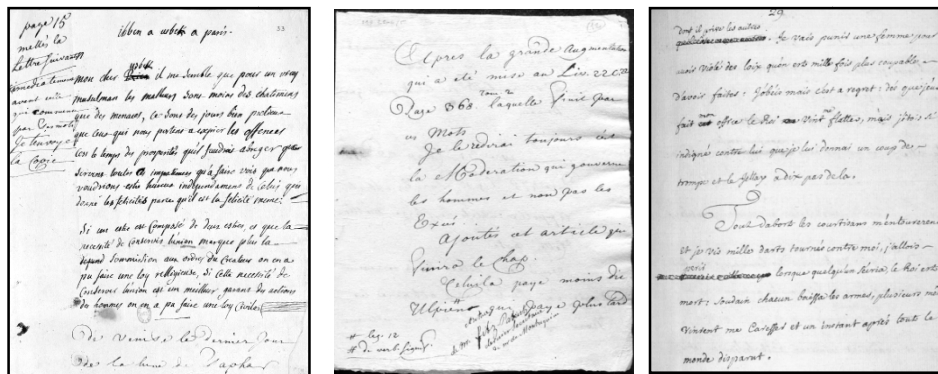 page 15
mettés la
Lettre suivante
immediatement
avant celle
qui commence
par
Je t'envoye
la Copie
33
ibben a usbek a paris.
mon cher usbek il me semble que pour un vray
musulman les malheurs sont moins des chatimens
que des menaces, ce sont des jours bien précieux
que ceux qui nous portent a expier les offences
c'est le temps des prosperités qu'il faudroit abreger que
servent toutes ces impatiences qu'a faire voir que nous
voudrions estre heureux independament de celuy qui
donne les felicités parce qu'il est la felicité meme.
Si un estre est Composé de deux estres, et que la
necessité de conserver l'union marque plus la
soumission aux ordres du Createur on en a
pu faire une loy religieuse, Si cette necessité de
Conserver l'union est un meilleur garant des actions
des hommes on en a pu faire une loy Civile
De venise le dernier jour
de la lune de Saphar
Apres la grande augmentation
qui a eté mise au Liv. 22 C.
tom. 2
Page 368. laquelle finit par
ces Mots
Je le redirai toujours c'est
la Moderation qui gouverne
les hommes et non pas les
Excés
ajoutés cet article qui
finira le chap.
Celui la paye moins dit
Ulpien qui paye plus tard
* leg. 12
# de verb. signif.
29
dont il prive les autres
Je vais punir une femme pour
avoir violé des loix qu'on est mille fois plus coupable
d'avoir faites: J'obéis mais c'est a regret: dès que j'eus
fait mon office le Roi vint me flatter, mais j'étois si
indigné contre lui que je lui donnai un coup de
trompe et le jettay a dix pas de la.
Tout d'abort les courtisans m'entourerent
et je vis mille darts tournés contre moi, j'allois
périr
lorsque quelqu'un s'écria, le Roi est
mort: soudain chacun baissa les armes, plusieurs même
vinrent me Caresser et un instant aprés tout le
monde disparut.